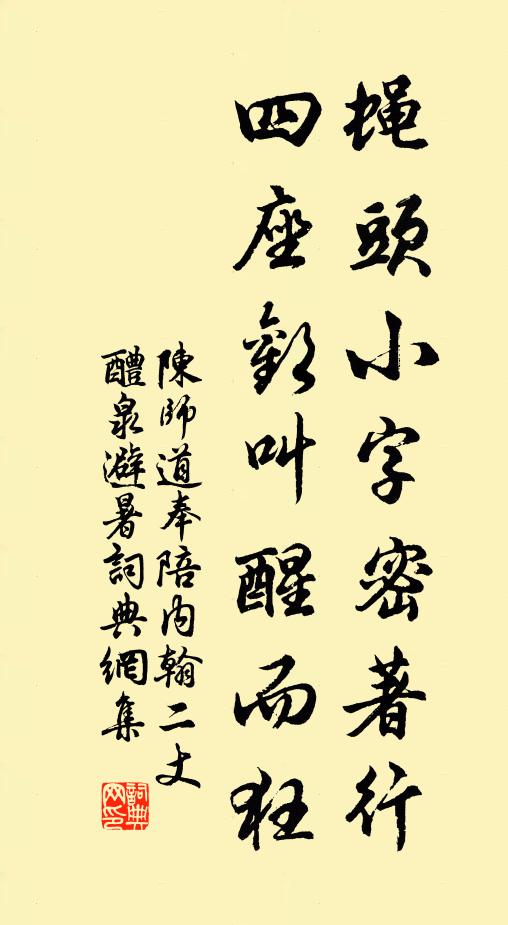 蝇頭小字密著行
四座歡叫醒而狂
陳師道奉陪内翰二丈
醴泉避暑詞典網集
詞典
网印